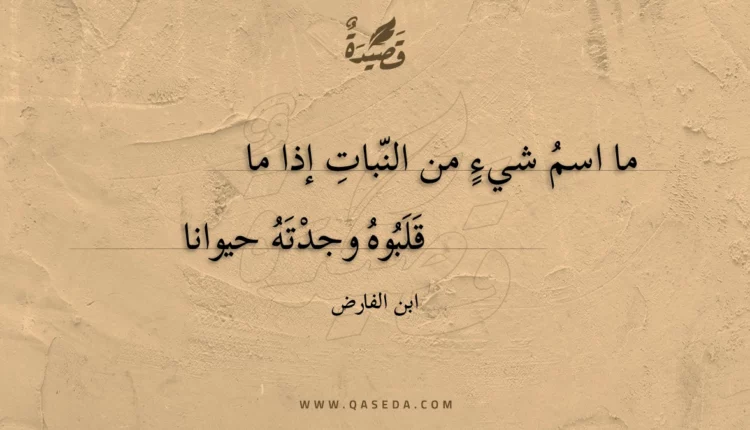 قَصِيدَةٌ
ما اسمُ شيءٍ من النّباتِ إذا ما
قَلَبُوهُ وجدْتَهُ حيوانا
ابن الفارض
WWW.QASEDA.COM